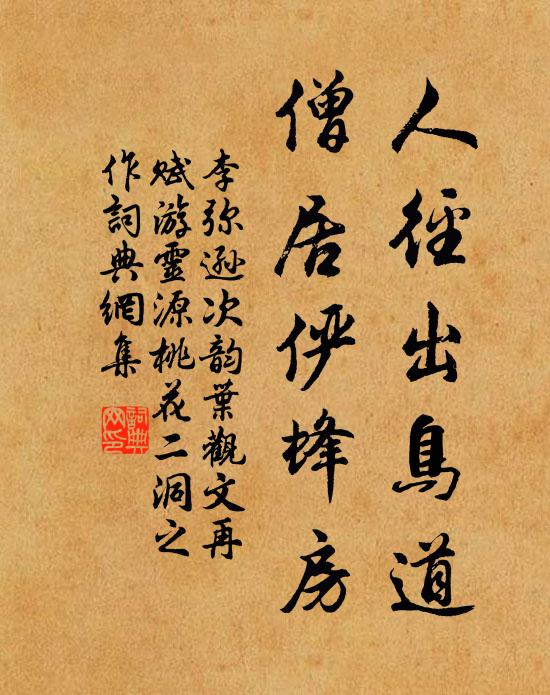 人徑出鳥道
僧居俨蜂房
李弥遜次韵葉觀文再
赋游靈源桃花二洞之
作詞典網集
詞典
网印